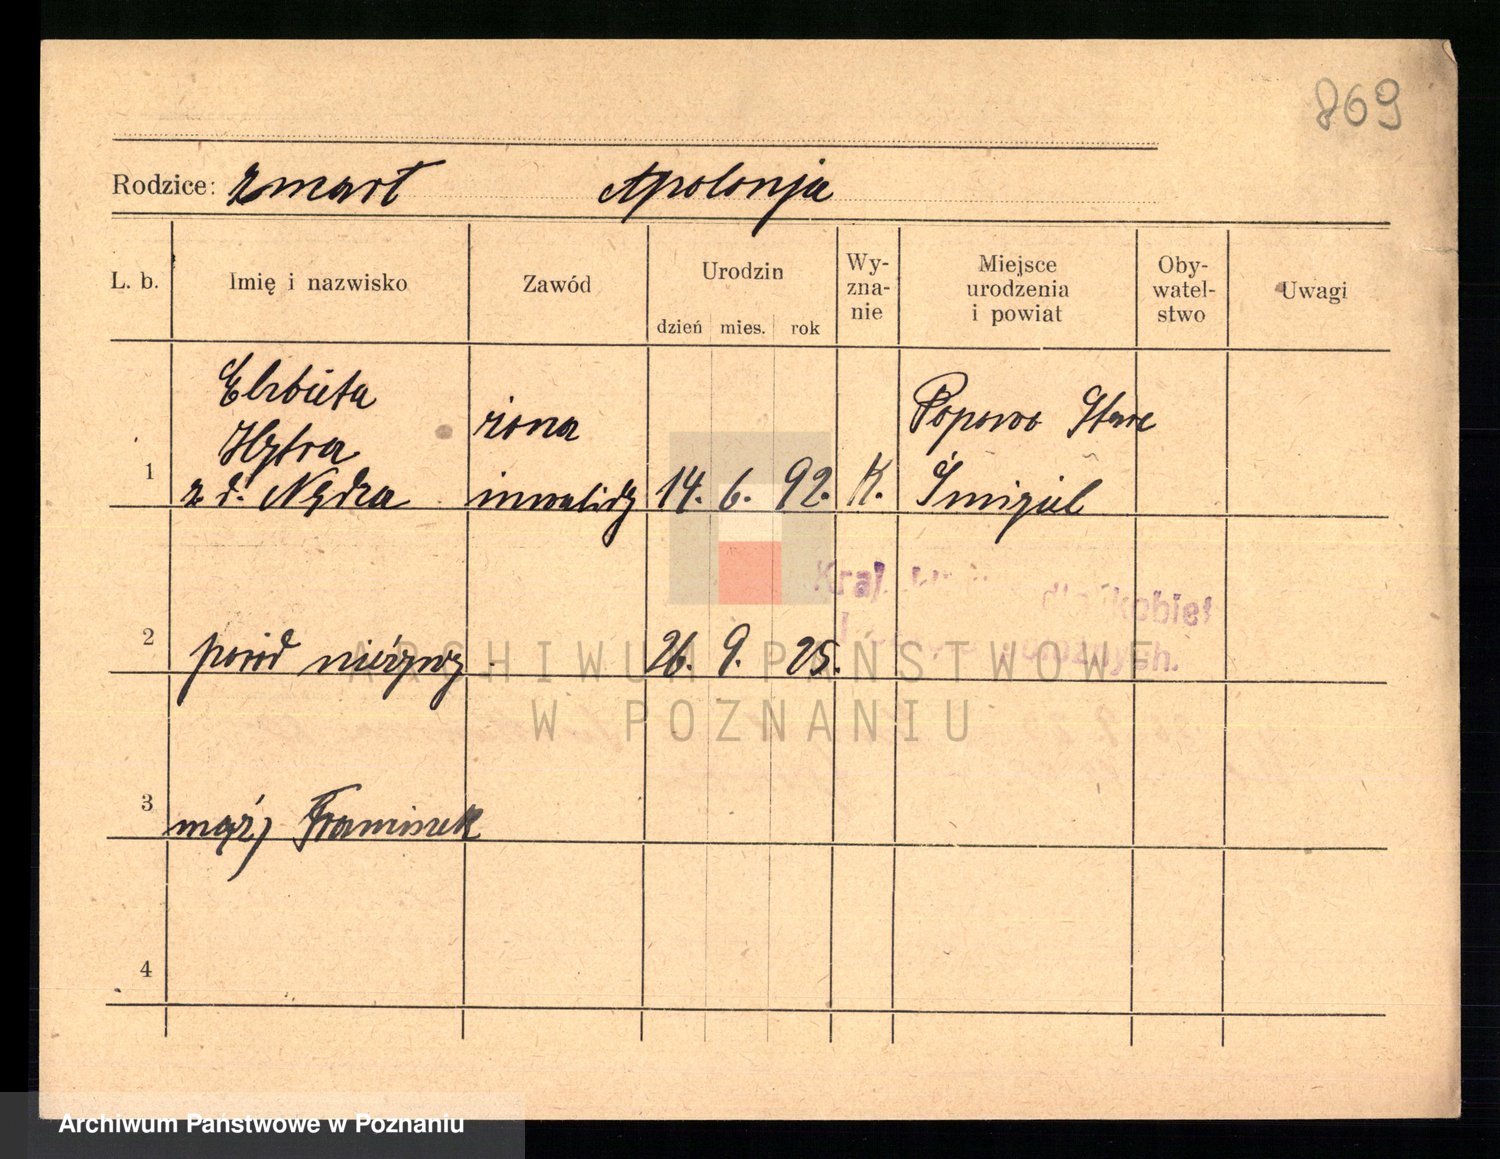 869
Rodzice: zmarł Apolonja
L. b.
Imię i nazwisko
Zawód
Urodzin
dzień mies. rok
Wy-
zna-
nie
Miejsce
urodzenia
i powiat
Oby-
watel-
stwo
Uwagi
1
Elzbieta
Hytra
z d. Nędza
żona
inwalidy
14. 6. 92.
K.
Popowo Stare
Śmigiel
Kraj. dla kobiet
położnych.
2
poród nieżywy
26. 9. 25.
3
mąż, Franciszek
4
ARCHIWUM PAŃSTWOWE
W POZNANIU
Archiwum Państwowe w Poznaniu